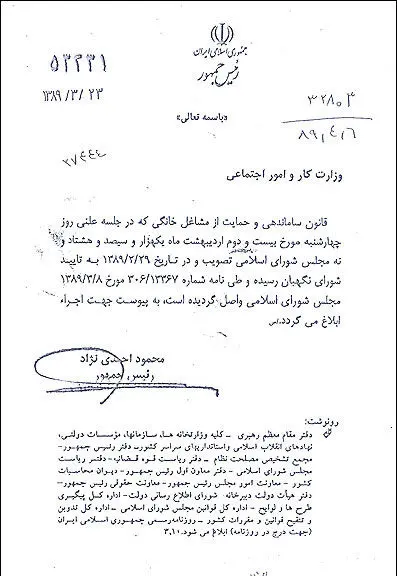 جمهوری اسلامی ایران
رئیس جمهور
۵۳۲۳۱
۱۳۸۹/۳/۲۳
«باسمه تعالی»
۳۲۸۰۳
۸۹,۴,۶
۲۷۴۴۴
وزارت کار و امور اجتماعی
قانون ساماندهی و حمایت از مشاغل خانگی که در جلسه علنی روز
چهارشنبه مورخ بیست و دوم اردیبهشت ماه یکهزار و سیصد و هشتاد و
نه مجلس شورای اسلامی تصویب و در تاریخ ۱۳۸۹/۲/۲۹ به تایید
شورای نگهبان رسیده و طی نامه شماره ۳۰۶/۱۳۳۶۷ مورخ ۱۳۸۹/۳/۸
مجلس شورای اسلامی واصل گردیده است، به پیوست جهت اجراء
ابلاغ می گردد.
محمود احمدی نژاد
رئیس جمهور
رونوشت:
دفتر مقام معظم رهبری – کلیه وزارتخانه ها، سازمانها، مؤسسات دولتی،
نهادهای انقلاب اسلامی و استانداریهای سراسر کشور– دفتر رئیس جمهور–
مجمع تشخیص مصلحت نظام – دفتر ریاست قوه قضائیه– دفتر ریاست
مجلس شورای اسلامی – دفتر معاون اول رئیس جمهور– دیوان محاسبات
کشور – معاونت امور مجلس رئیس جمهور– معاونت حقوقی رئیس جمهور–
دفتر هیأت دولت دبیرخانه شورای اطلاع رسانی دولت– اداره کل پیگیری
طرح ها و لوایح – اداره کل قوانین مجلس شورای اسلامی – اداره کل تدوین
و تنقیح قوانین و مقررات کشور – روزنامه رسمی جمهوری اسلامی ایران
(جهت درج در روزنامه) ابلاغ می شود. ۳,۱۰